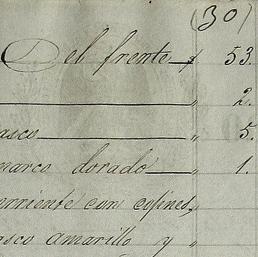 (30)
Del frente $ 53.
" 2.
asco " 5.
marco dorado " 1.
erriente con cojines, "
asco amarillo y "